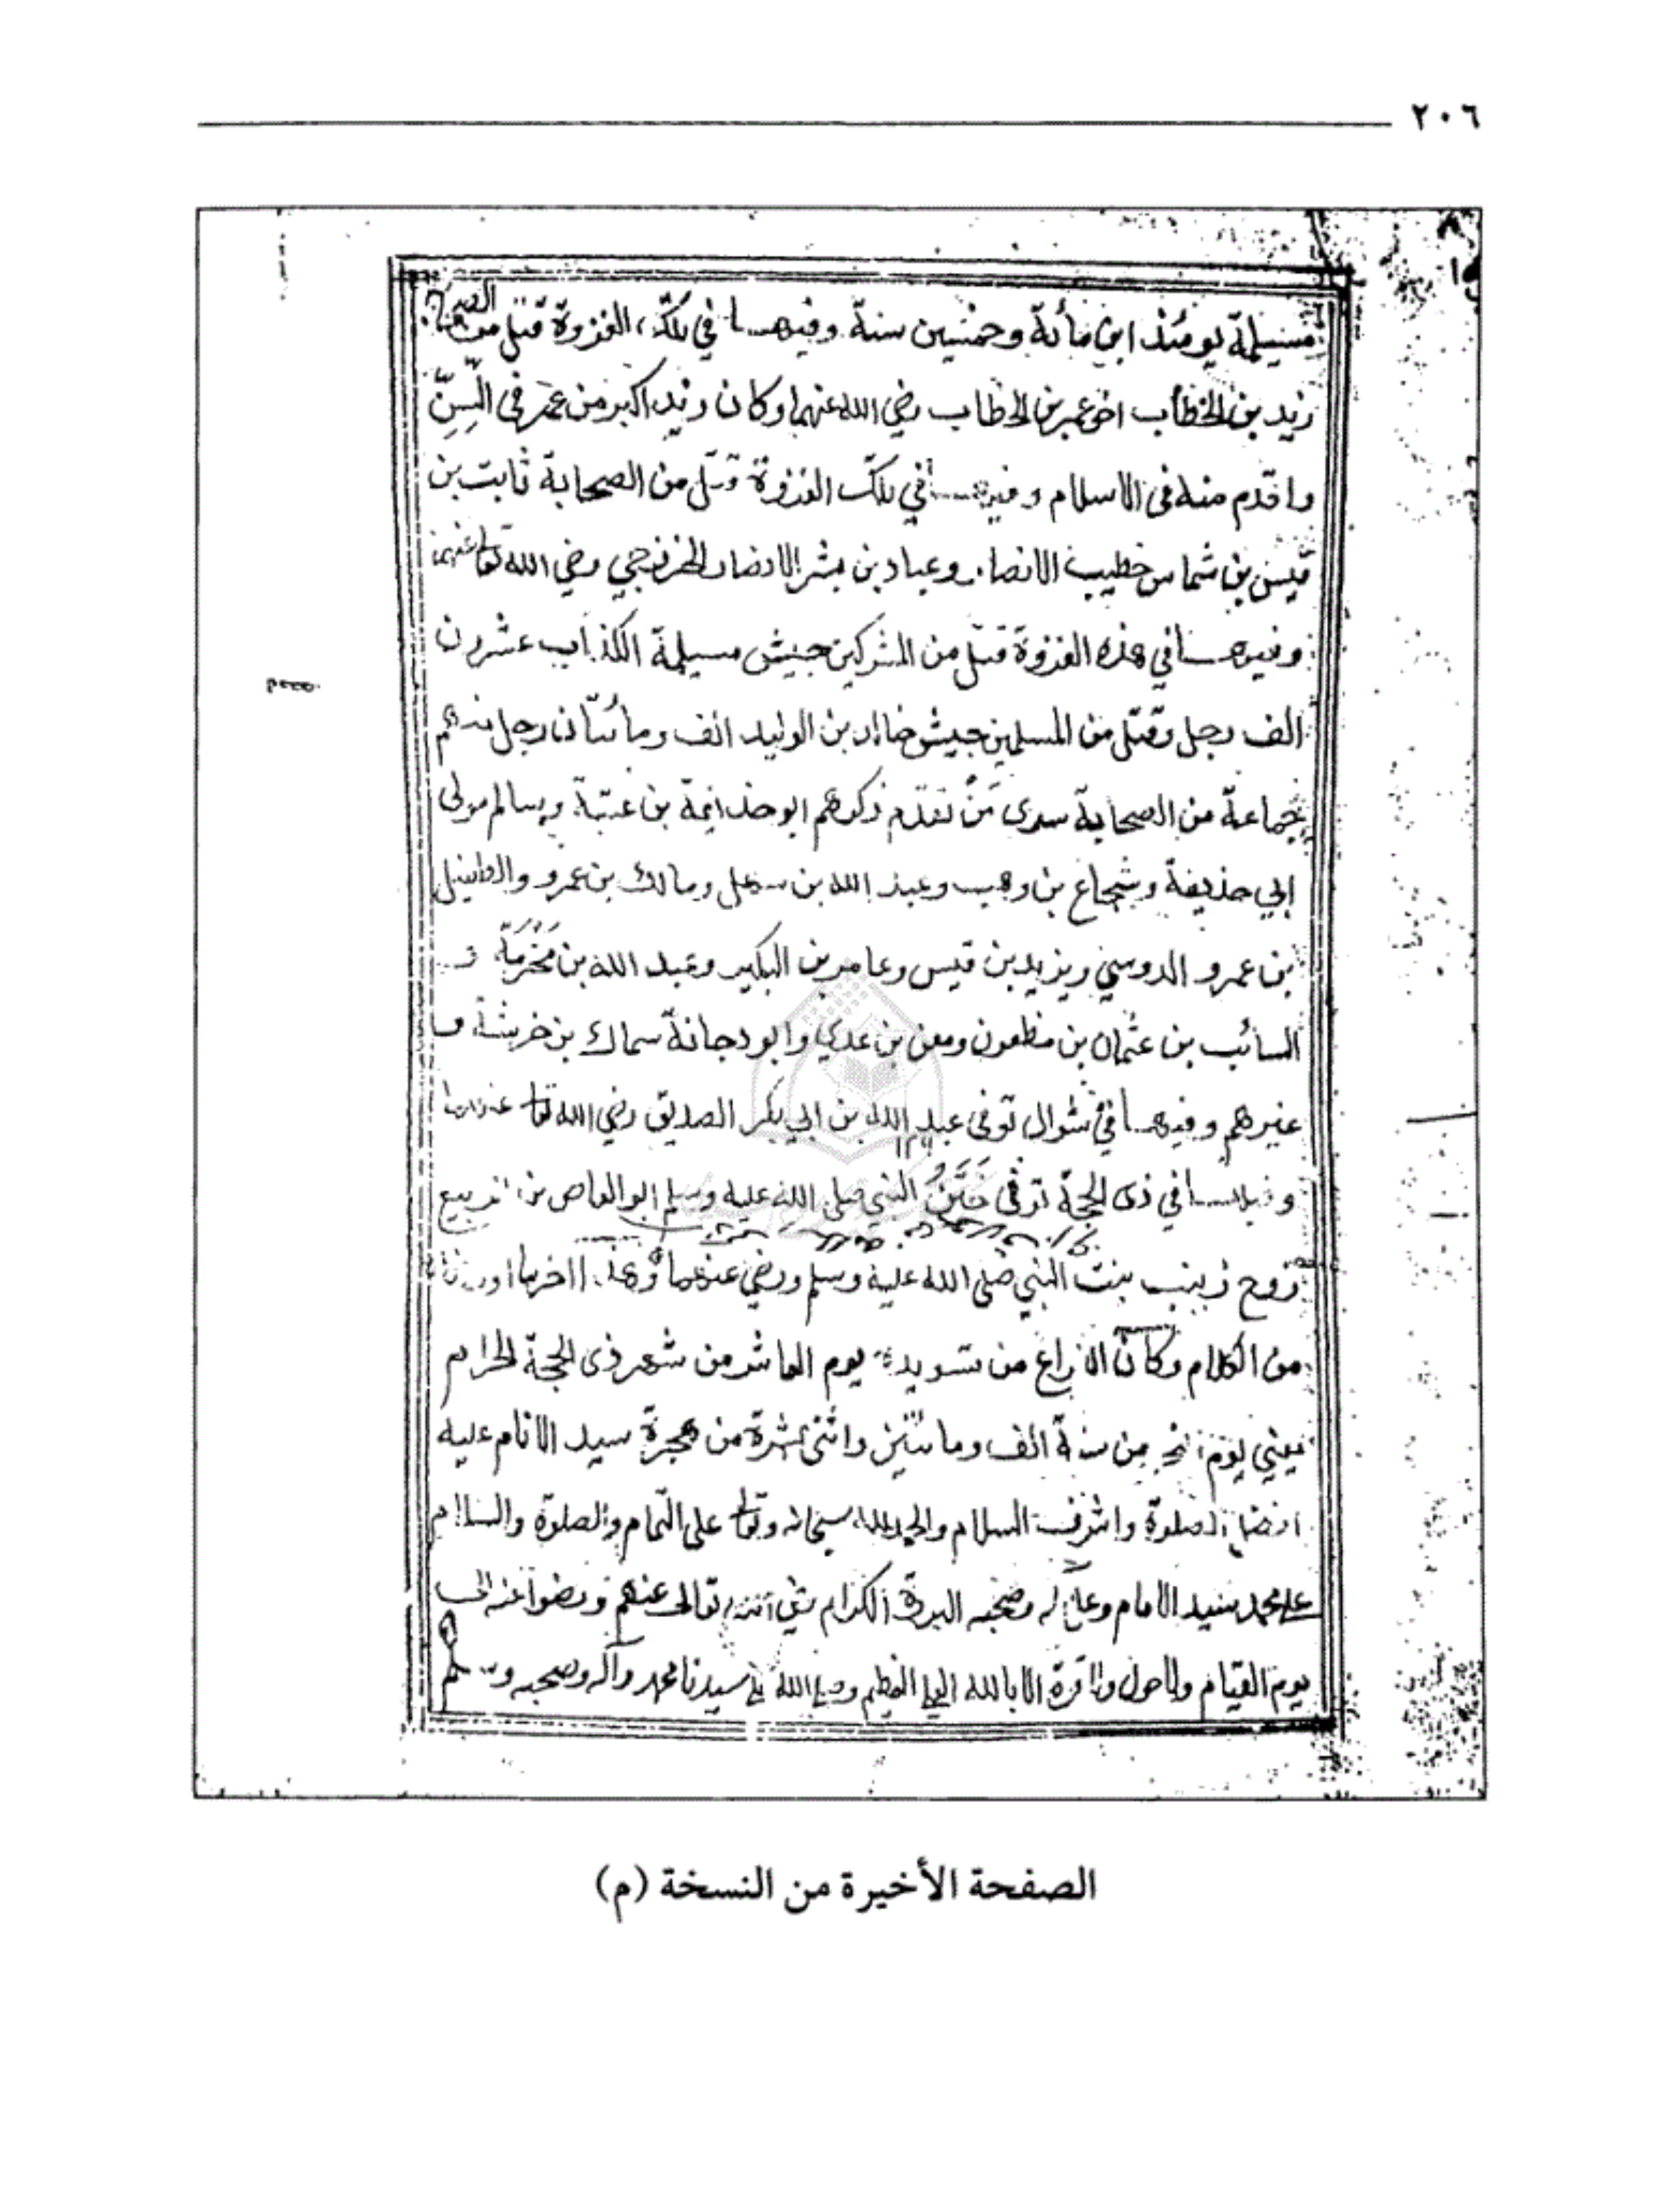 ٢٠٦
مسيلمة يومئذ ابن مأئة وخمسين سنة وفيهـا في تلك الغزوة قتل من الصحابة
زيد بن الخطاب اخو عمر بن الخطاب رضي الله عنهما وكان زيد اكبر من عمر في السِنِّ
واقدم منه في الاسلام وفيهـا في تلك الغزوة قتل من الصحابة ثابت بن
قيس بن شماس خطيب الانصار وعباد بن بشر الانصار الخزرجي رضي الله تعا عنهما
وفيهـا في هذه الغزوة قتل من المشركين جيش مسيلمة الكذاب عشرون
الف رجل وقتل من المسلمين جيش خالد بن الوليد الف ومأئتان رجل منهم
جماعة من الصحابة سوى مَن تقدم ذكرهم ابو حذيفة بن عتبة وسالم مولى
ابي حذيفة وشجاع بن وهب وعبد الله بن سهل ومالك بن عمرو والطفيل
بن عمرو الدوسي ويزيد بن قيس وعامر بن البكير وعبد الله بن مَخْرَمَة و
السائب بن عثمان بن مظعون ومعن بن عدي وابو دجانة سماك بن خرشة و
غيرهم وفيهـا في شوال توفى عبد الله بن ابي بكر الصديق رضي الله تعا عنهما
وفيهـا في ذى الحجة توفى خَتَنُ النبي صلى الله عليه وسلم ابو العاص بن الربيع
زوج زينب بنت النبي صلى الله عليه وسلم ورضي عنهما وهذا اخر ما اوردنا
من الكلام وكان الفراغ من تسويده يوم العاشر من شهر ذى الحجة الحرام
يعني يوم النحر من سنة الف ومائتين واثنى عشرة من هجرة سيد الانام عليه
افضل الصلوة واشرف السلام والحمد لله سبحانه وتعا على التمام والصلوة والسلام
على محمد سيد الانام وعلى آله وصحبه البررة الكرام رضي الله تعالى عنهم ورضوا عنه الى
يوم القيام ولا حول ولا قوة الا بالله العلي العظيم وصلى الله على سيدنا محمد وآله وصحبه وسلم
الصفحة الأخيرة من النسخة (م)